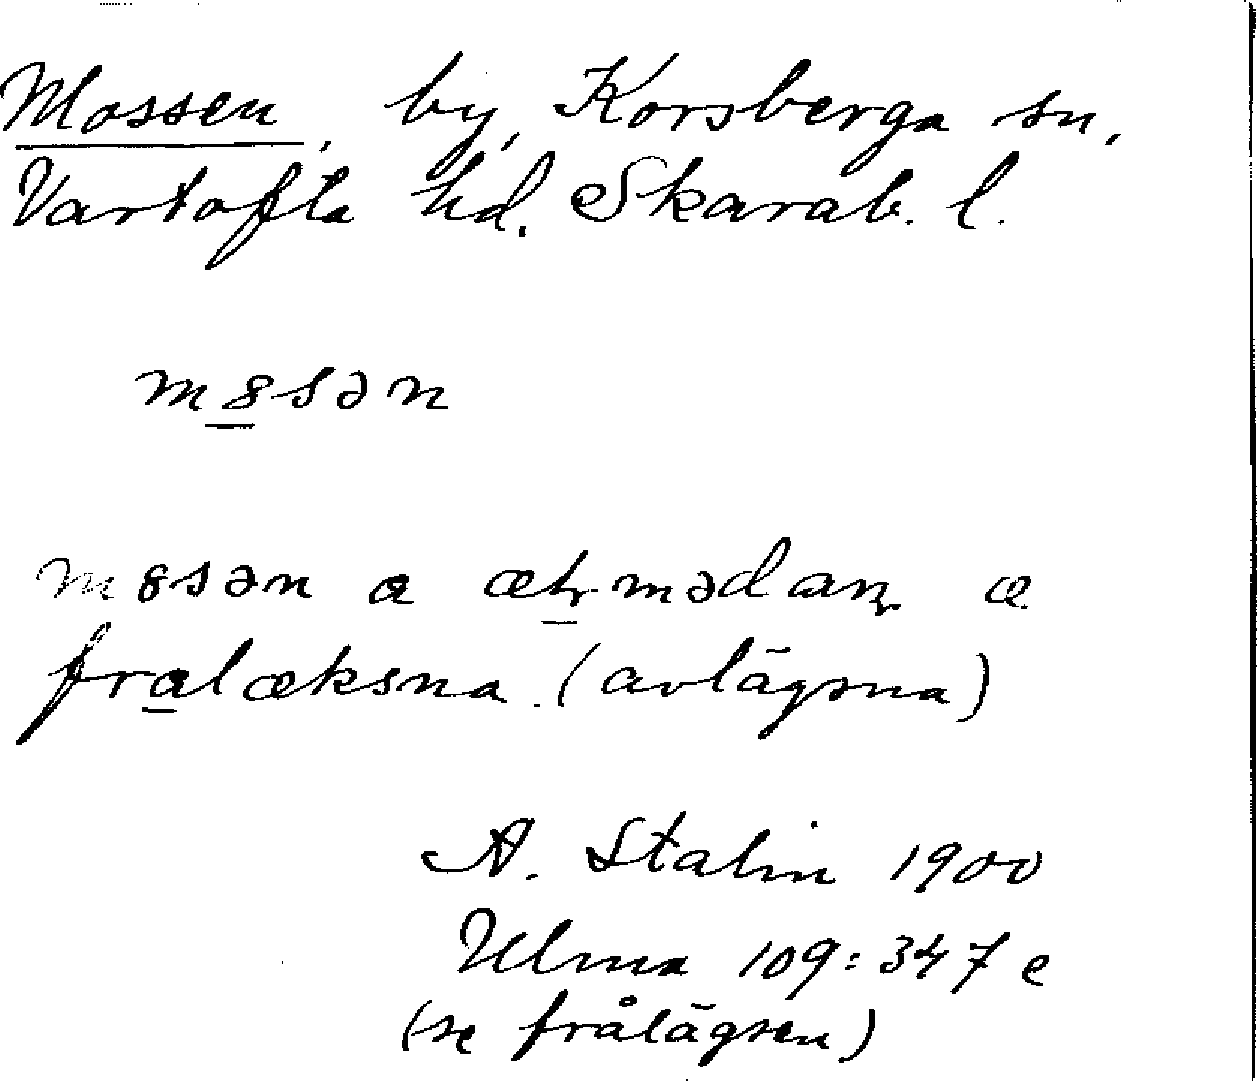 Mossen, by, Korsberga sn,
Vartofta hd. Skarab. l.
m8sən
m8sən a æhmədan æ
fralæksna. (avlägsna)
A. Stalin 1900
Ulma 109:347 e
(se frålägsen)